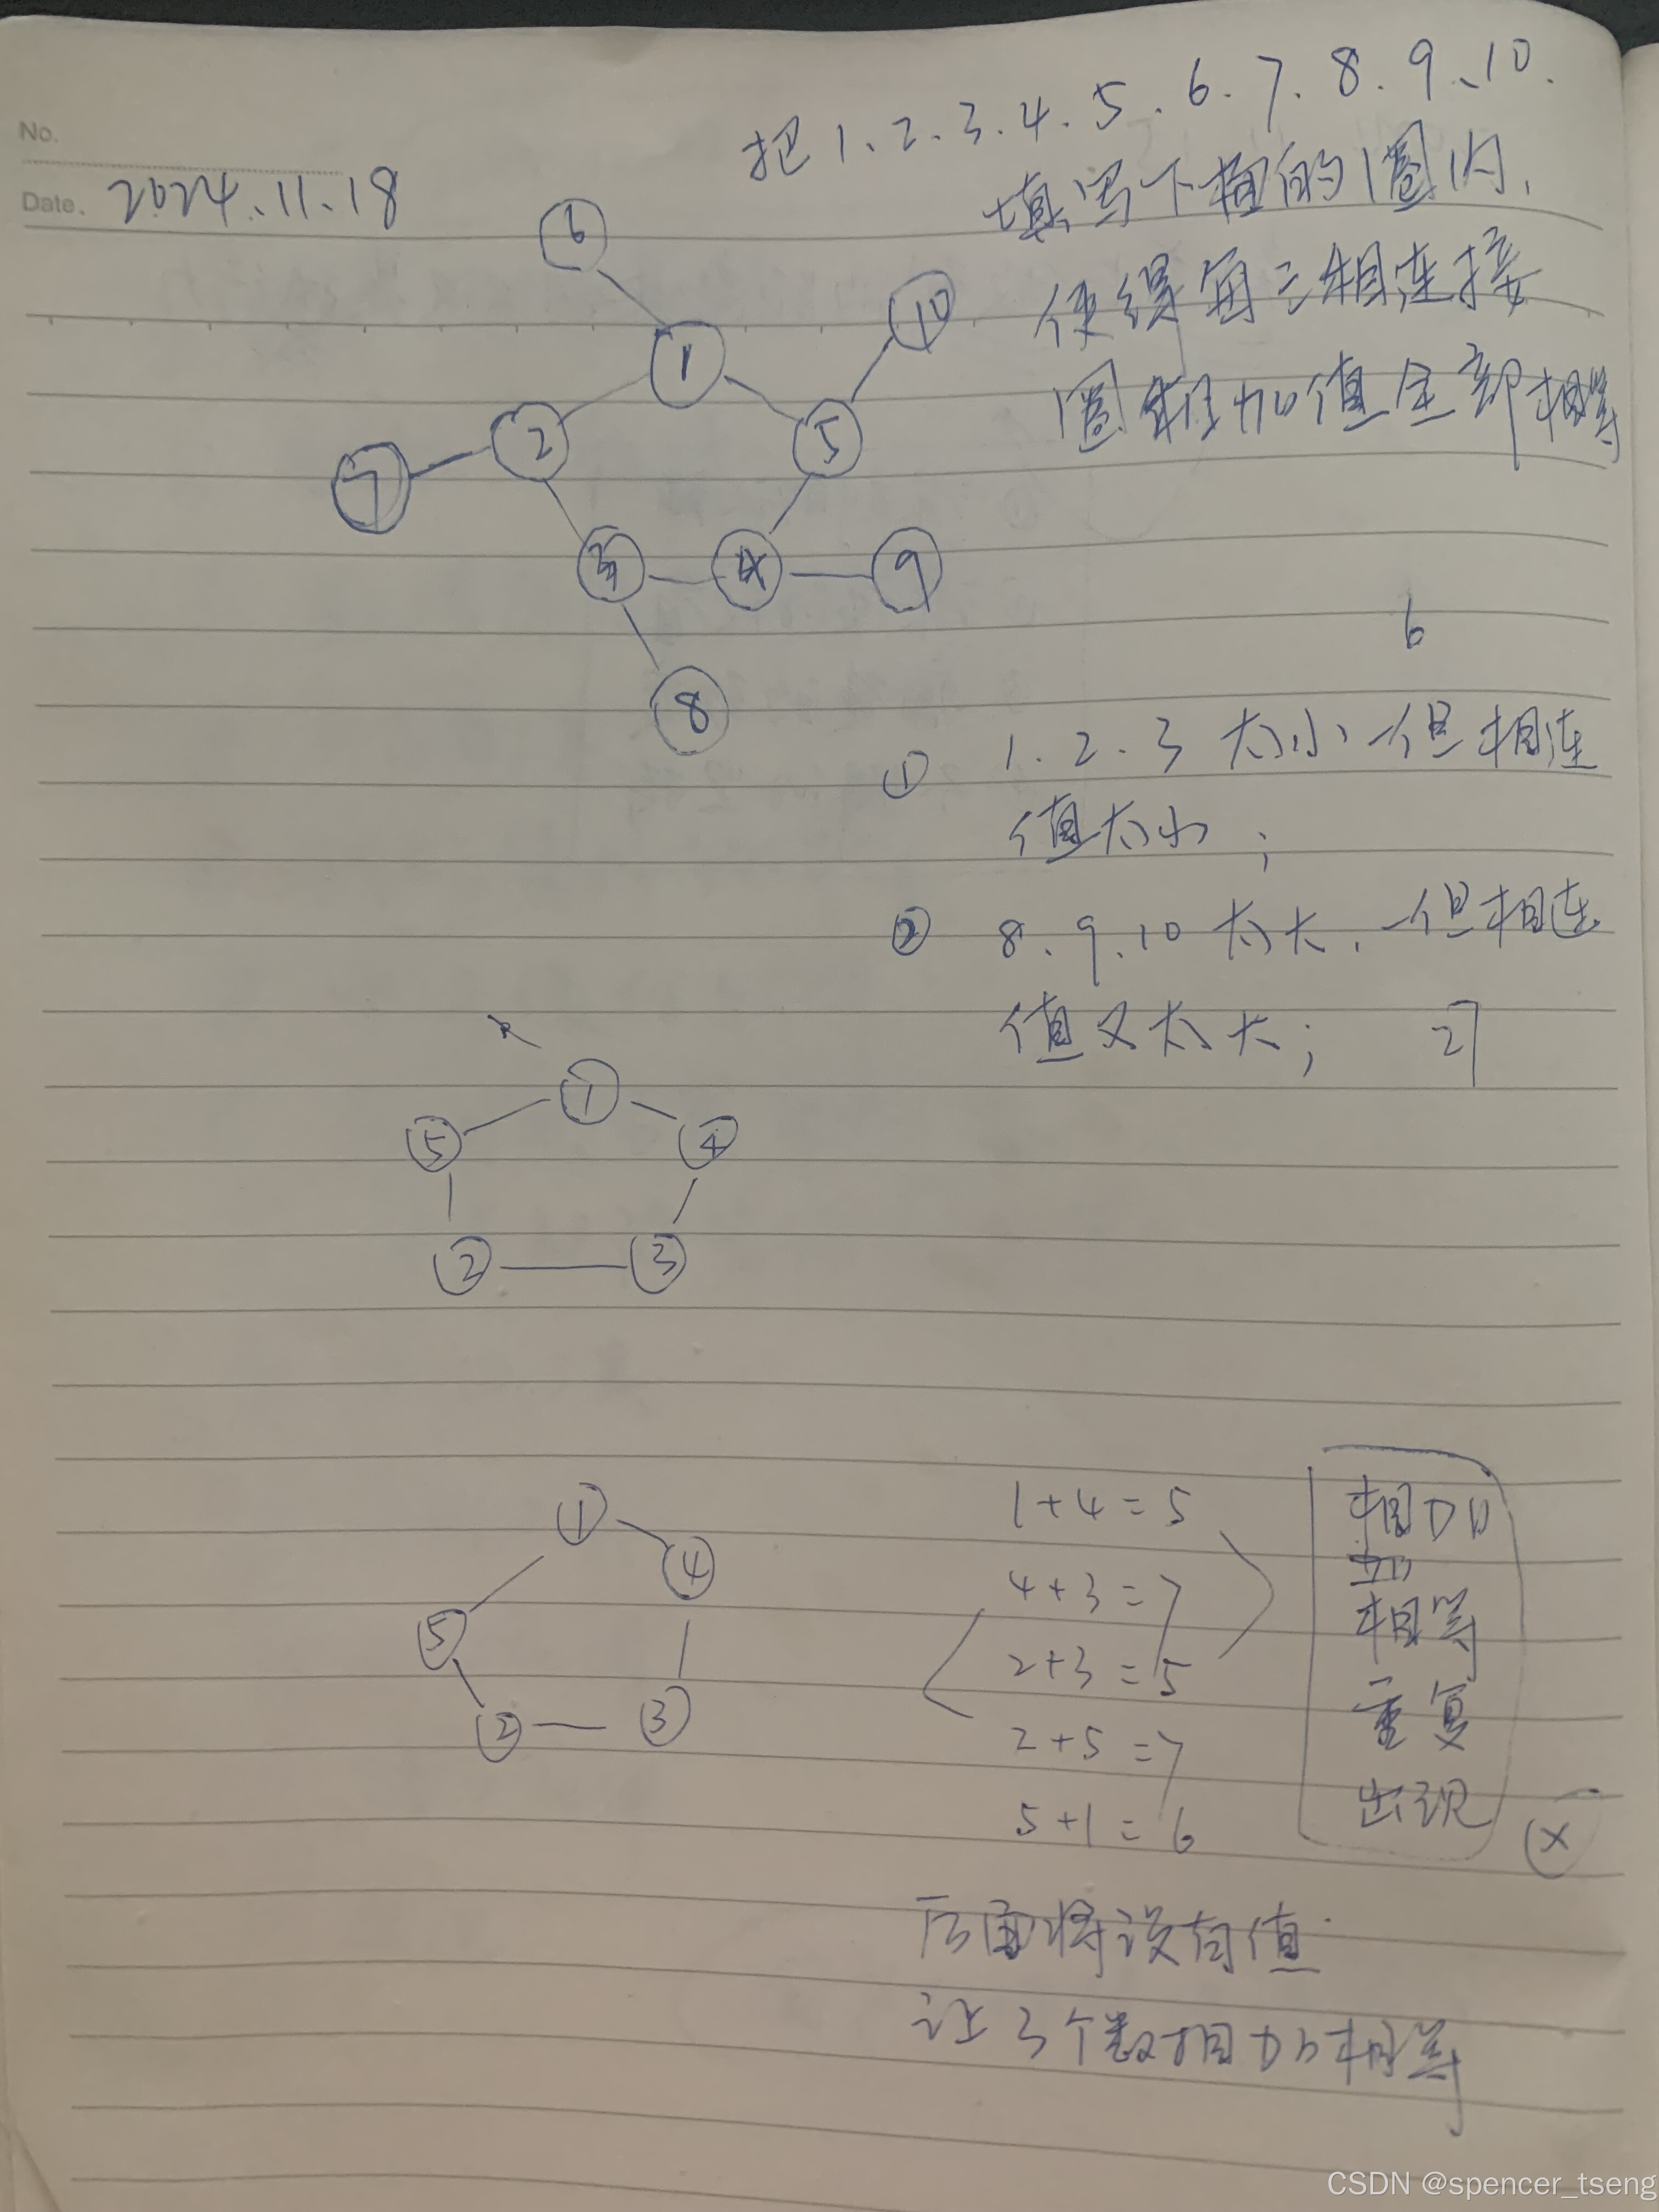 No.
Date. 2024.11.18
把1、2.3.4.5.6.7.8.9、10.
填写下面的圈内,
使得每三相连接
圈相加值全部相等
6
10
1
2
5
7
3
4
9
8
6
① 1.2.3太小、一但相连
值太小;
② 8、9、10太大,一但相连
值又太大; 27
1
5
4
2
3
1
4
5
2
3
1+4=5
4+3=7
2+3=5
2+5=7
5+1=6
相加
相等
重复
出现
X
后面将没有值
让3个数相加相等
CSDN @spencer_tseng